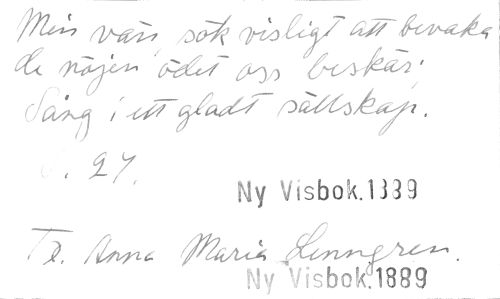 Min vän, sök visligt att bevaka
de nöjen ödet oss beskär;
Sång i ett gladt sällskap.
S. 27.
Ny Visbok. 1889
Tx. Anna Maria Lenngren.
Ny Visbok. 1889